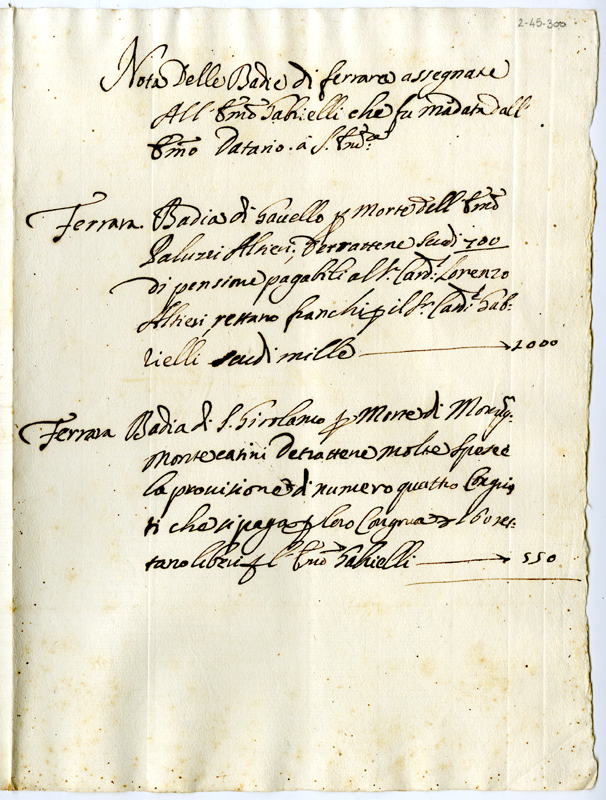 2-45-300
Nota Delle Badie di ferrara assegnate
All' Emo Gabrielli che fu mãdata dall'
Emo Datario. a S. Emza
Ferrara. Badia di Gavello p Morte dell' Emo
Paluzei Altieri, Detrattene Scudi 700
di pensione pagabili al Sr. Card.l Lorenzo
Altieri restano franchi p il Sr. Card.l Gab-
rielli scudi mille 1000
Ferrara Badia di S. Girolamo p Morte di Monsig.
Montecatini Detrattene molte spese e
la provisione di numero quattro
ti che si paga p loro Congrua res-
tano liberi p l' Emo Gabrielli 550